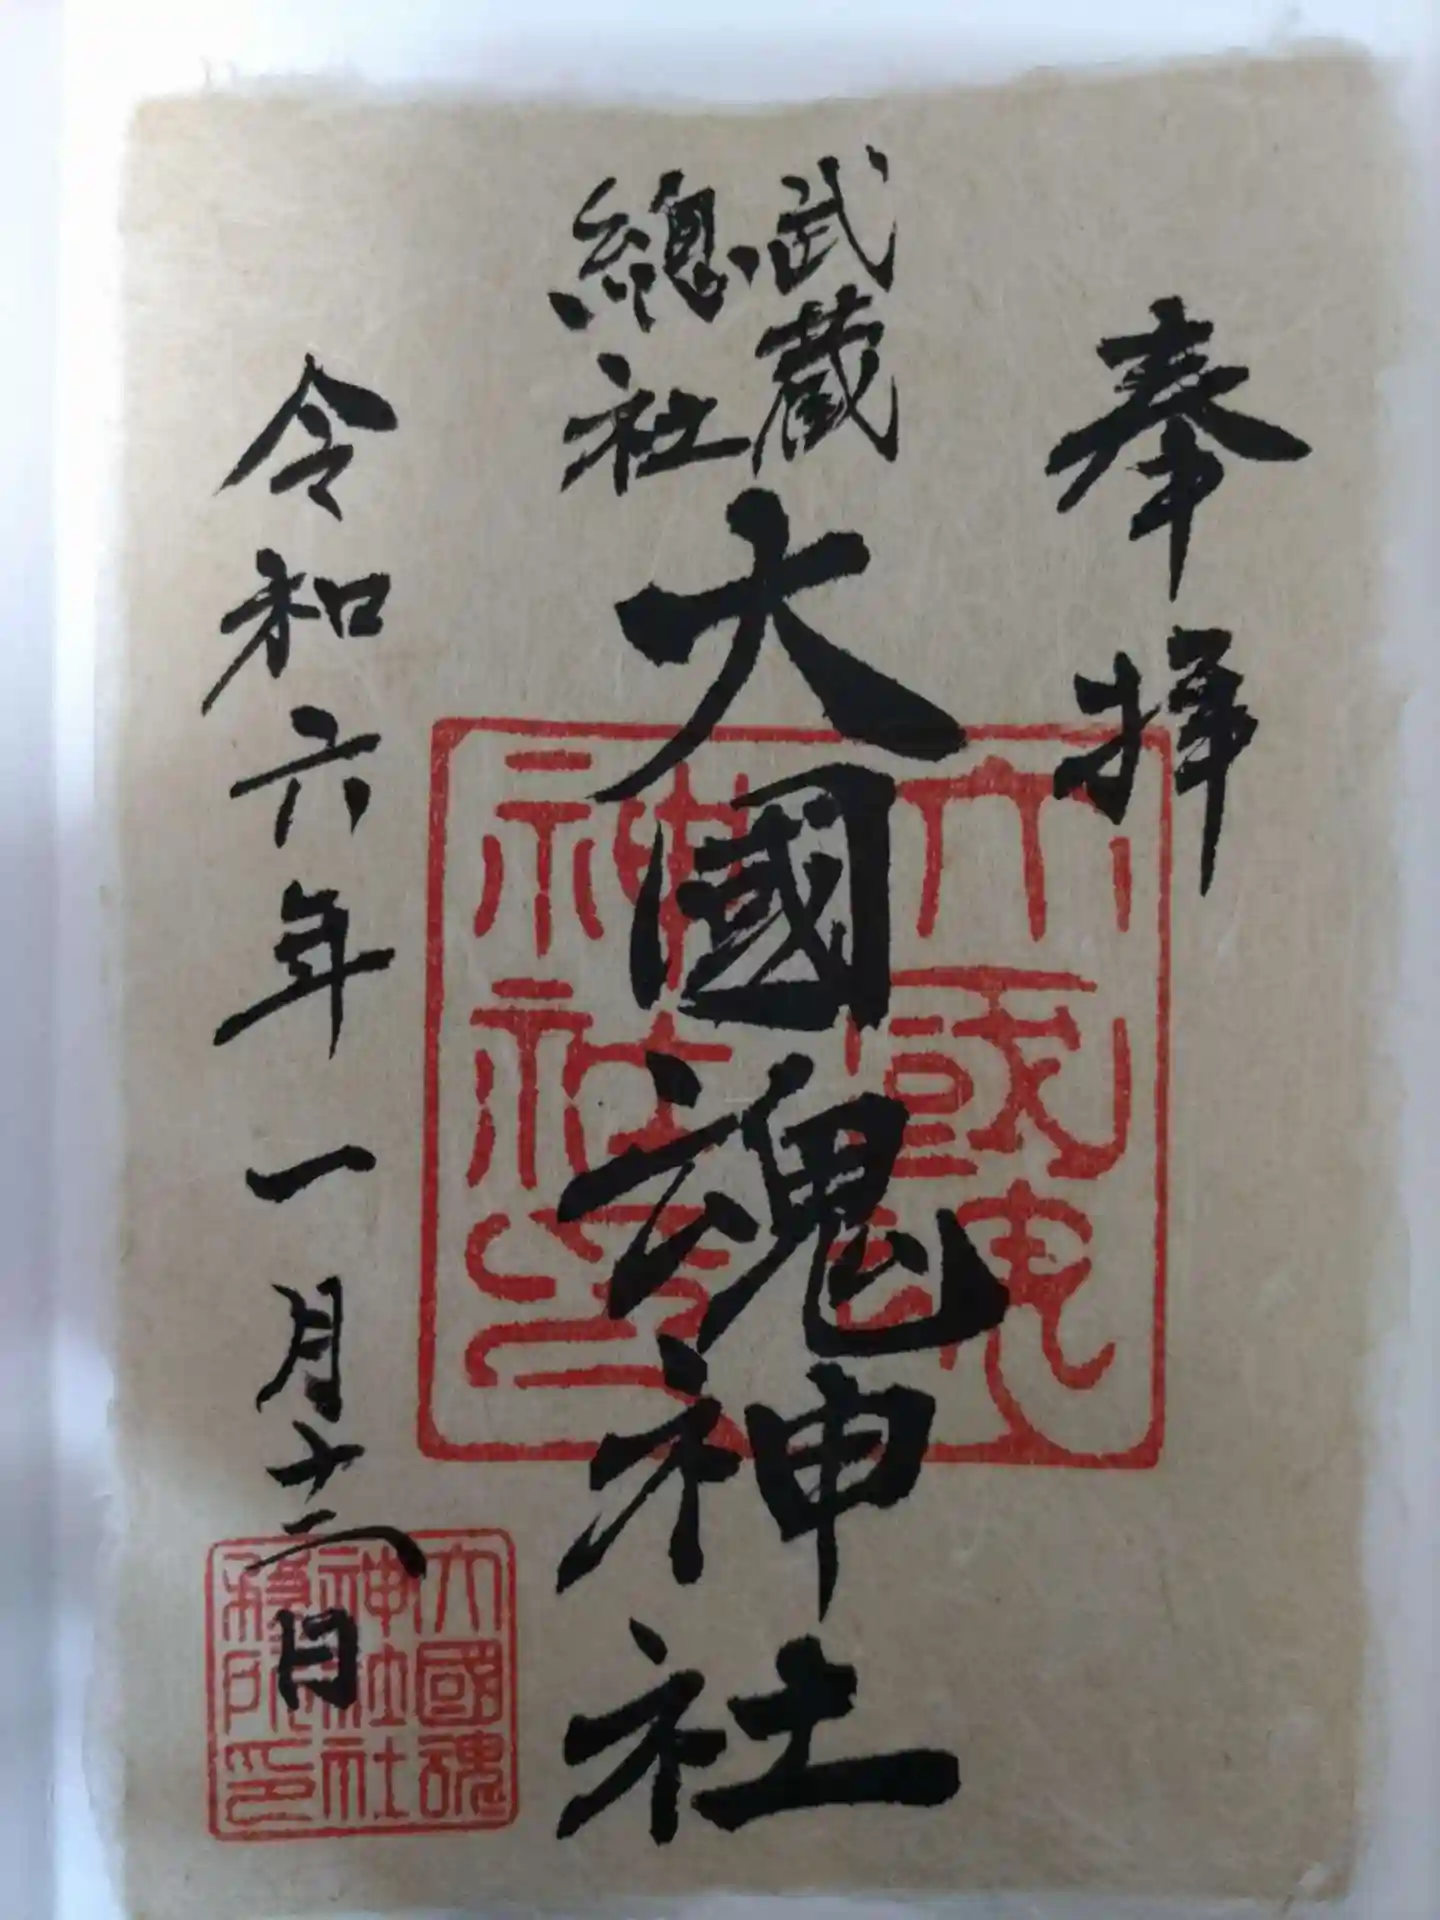 奉拝
武蔵
總社
大國魂神社
令和六年一月十二日
大國魂
神社印
大國魂
神社社
務所印